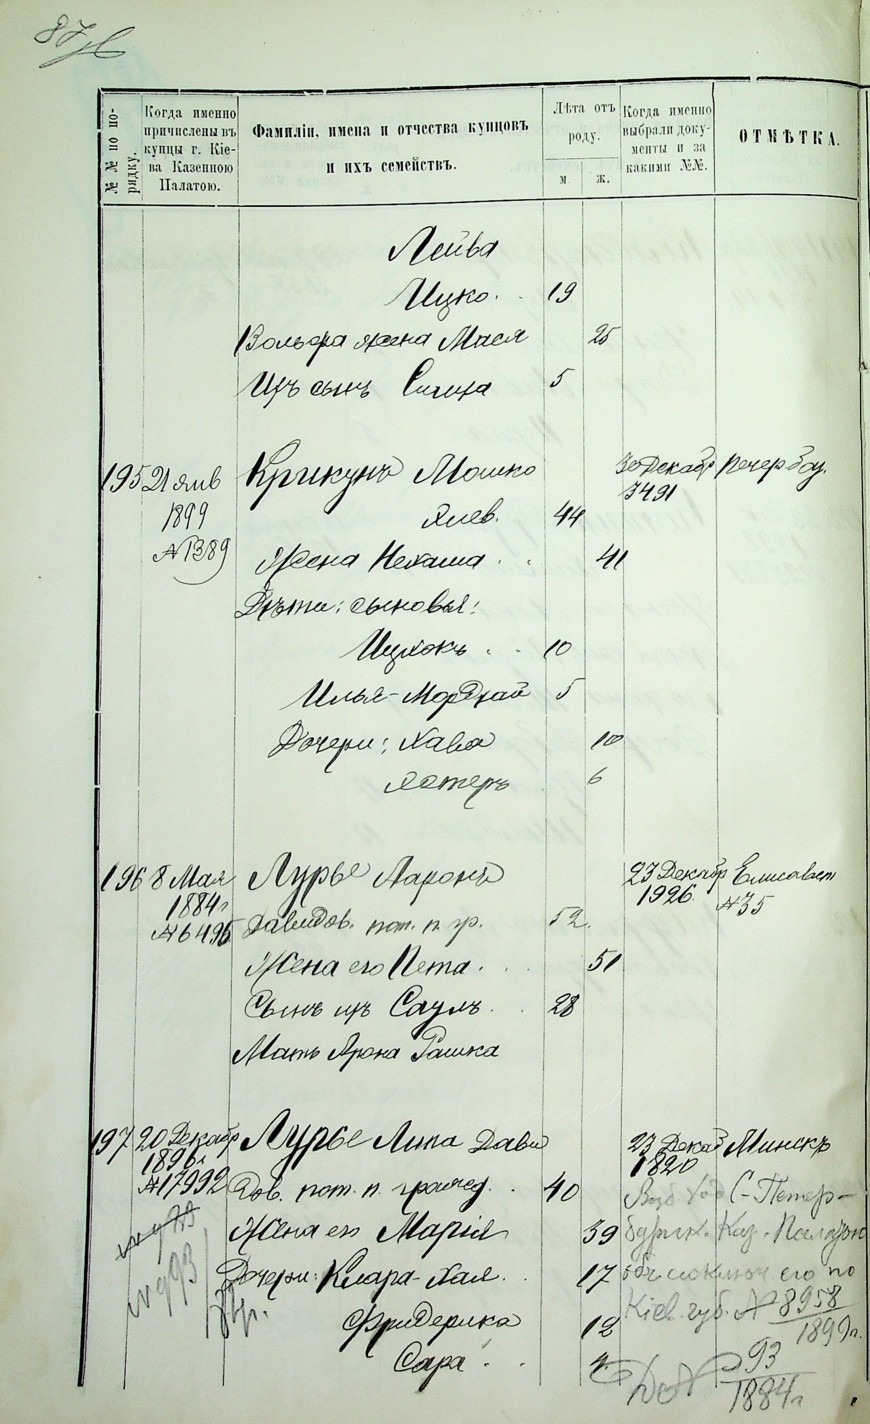 87
№№ по по-
рядку.
Когда именно
причислены въ
купцы г. Кіе-
ва Казенною
Палатою.
Фамиліи, имена и отчества купцовъ
и ихъ семействъ.
Лѣта отъ
роду.
м
ж.
Когда именно
выбрали доку-
менты и за
какими №№.
ОТМѢТКА.
Лейба
Ицко. 19
Вольфа жена Мася 25
Ихъ сынъ 5
195 21 янв Крикунъ Мошко 30 Декабр Печер
1899 3491
Ялев. 44
№ 1389
Жена Нехама 41
Дѣти: сыновья:
Ицхокъ 10
Илья-Мордхай 5
Дочери: Хава 10
Эстеръ 6
196 8 Мая Лурье Ааронъ 23 Декабр Елисавет
1884г 1926 №35
№6495 Давидов. пот. п. гр. 52.
Жена его Пета. 51
Сынъ ихъ Саулъ 28
Мать Арона Рашка
197 20 Декабр Лурье Липа Дави 23 Декаб Минскъ
1896г 1820
№17992 дов. пот. п. гражд. 40
С-Петер-
Жена его Марія 39 бургк. Каз. Палатою
№ 993
Дочери: Клара-Хая 17 объ исключ его по
Кіев. губ. № 8958
Фридерика 12 1899г.
Сара 4
93
1884г